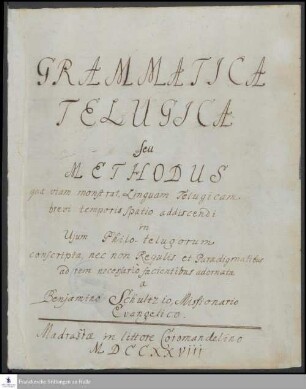 GRAMMATICA
TELUGICA
seu
METHODUS
quæ viam monstrat, Linguam Telugicam
brevi temporis spatio addiscendi
in
Usum Philo-telugorum
conscripta, nec non Regulis et Paradigmatibus
ad rem necessario facientibus adornata
a
Benjamino Schultzio, Missionario
Evangelico.
Madrastæ in littore Coromandelino
MDCCXXVIII
Franckesche Stiftungen zu Halle